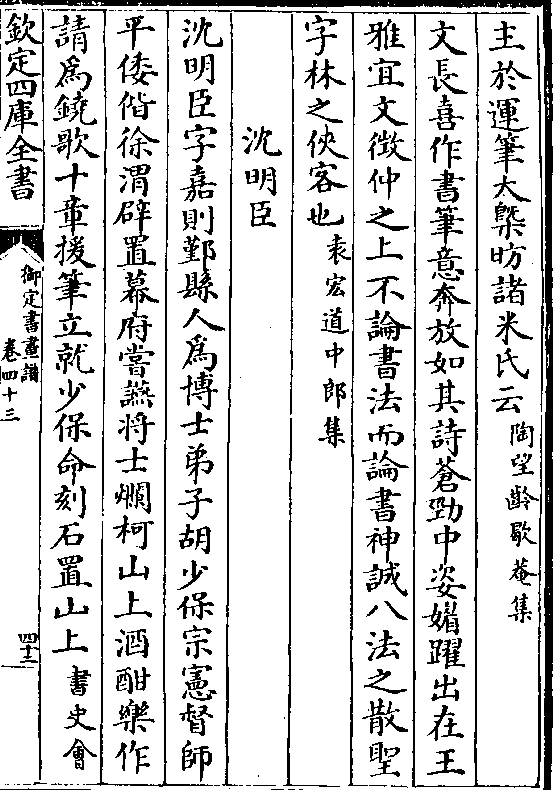 主於運筆大槩昉諸米氏云陶望齡歇菴集
文長喜作書筆意奔放如其詩蒼勁中姿媚躍出在王
雅宜文徴仲之上不論書法而論書神誠八法之散聖
字林之俠客也袁宏道中郎集
沈明臣
沈明臣字嘉則鄞縣人為博士弟子胡少保宗憲督師
平倭偕徐渭辟置幕府嘗讌将士爛柯山上酒酣樂作
請為鐃歌十章援筆立就少保命刻石置山上書史㑹
欽定四庫全書
御定書畫譜
卷四十三
四十三